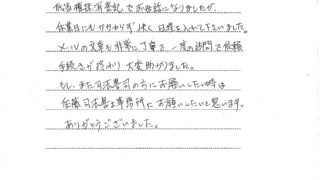 抵当権抹消登記でお世話になりましたが、
休業日にもかかわらず快く日程を入れて下さいました。
メールの文章も非常に丁寧で一度の訪問で依頼
手続きが終わり大変助かりました。
もし、また司法書士の方にお願いしたい時は
佐藤司法書士事務所にお願いしたいと思います。
ありがとうございました。